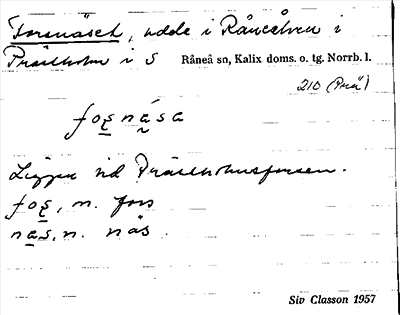 Forsnäset, udde i Råneälven i
Prästholm i S Råneå sn, Kalix doms. o. tg. Norrb. l.
210 (Prä)
fo̱s̱ná̱sa
Ligger vid Prästholmsforsen.
fo̱s̱, n. fors
na̱s̱, n. näs
Siv Classon 1957